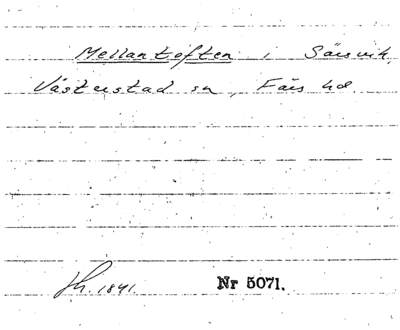 Mellantoften i Särsvik,
Västerstad sn, Färs hd.
Jh. 1841. Nr 5071.